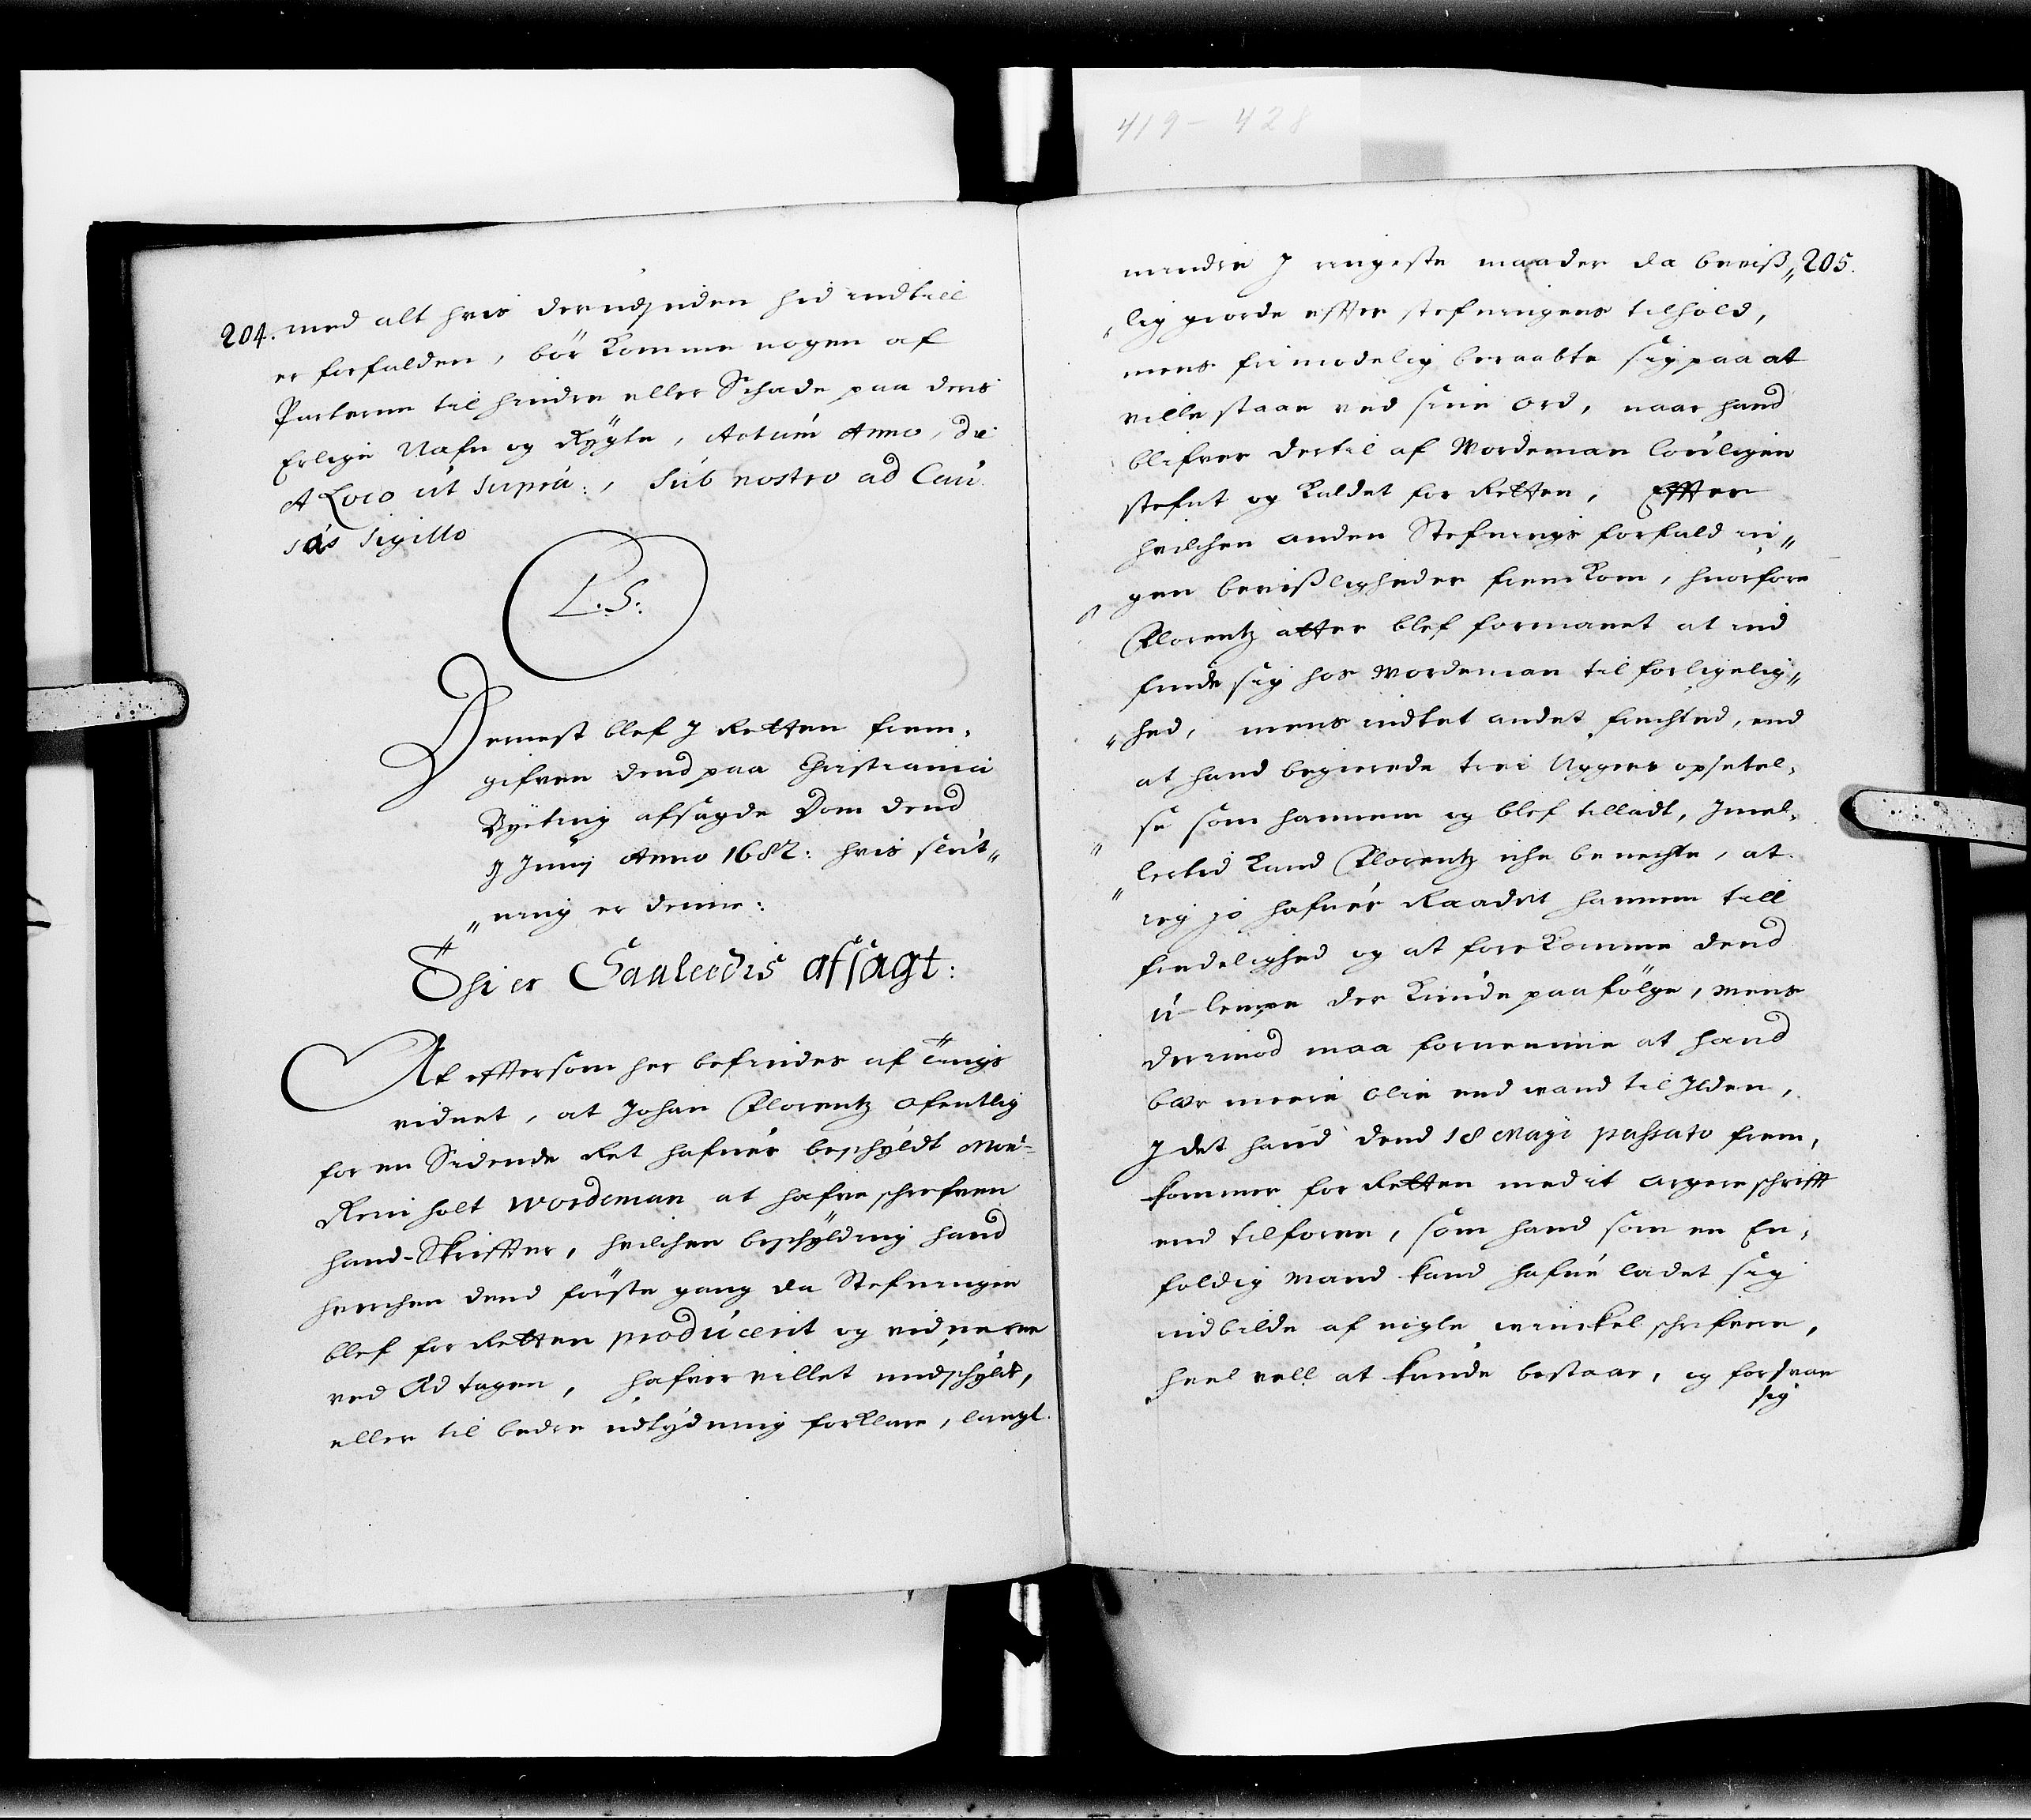 419 - 428
204. med alt hvis derudj siden hid indtill
er forfalden, bör komme nogen af
Parterne til hindre eller Schade paa deris
Erlige Nafn og Rÿgte, Actum Anno, Die
& Loco ut supra:, Sub nostro ad Cau
sas Sigillo
L. S:
Dernest blef J Retten frem,
gifven dend paa Christiania
Byeting afsagde Dom dend
Junij Anno 1682: hvis slut„
„ning er denne:
Thi er Saaledis afsagt:
At efftersom her befindes af Tings
vidnet, at Johan Florentz ofentlig
for en Sidende Ret hafuer beschyldt Mr:
Reinholt Wordeman at hafve schrefven
hand-Skriffter, hvilchen beschyldning hand
hverchen dend förste gang da Stefningen
blef for Retten producerit og vidnerne
ved Æd tagen, hafver villet undschylde,
eller til bedre udtydning forklare, langt
mindre J ringeste maader da beviß„ 205.
„lig giorde effter stefningens tilhold,
mens frimodelig beraabte sig paa at
ville staae ved sine ord, naar hand
blifver dertil af Wordeman louligen
stefnt og kaldet for Retten, Effter
hvilchen anden Stefnings forfald in„
gen bevißligheder fremkom, hvorfore
Florentz atter blef formanet at ind
finde sig hos Wordeman til forligelig„
„hed, mens indtet andet fruchted, end
at hand begierede trei Ugers opsetel,
se som hannem og blef tilladt, Jmel,
lertid kand Florentz iche benechte, at
ieg jo hafuer Raadet hannem till
fredelighed og at forekomme dend
u-lempe der kunde paafölge, mens
derimod maa fornemme at hand
bær meere olie end vand til Jlden,
J det hand dend 18 Maji passato frem,
kommer for Retten med it argere schrifft
end tilforne, som hand som en En,
foldig Mand kand hafue ladet sig
indbilde af nogle winckel schrifvere,
heel vell at kunde bestaae, og forsvare
sig